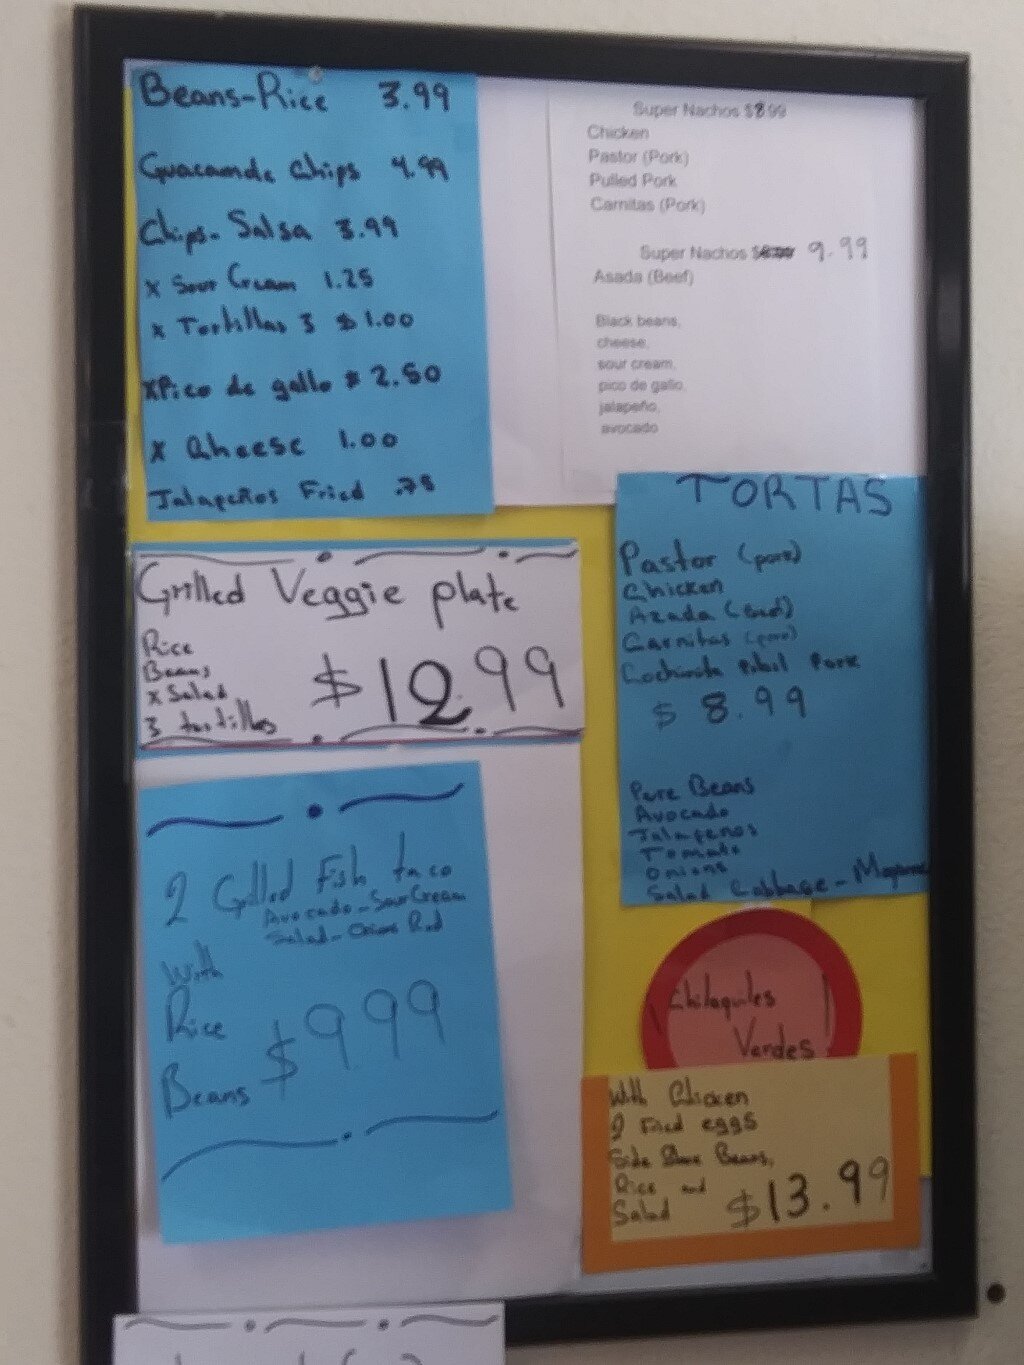 Beans-Rice 3.99
Guacamole Chips 4.99
Chips-Salsa 3.99
x Sour Cream 1.25
x Tortillas 3 $1.00
xPico de gallo $2.50
x Qheese 1.00
Jalapeños Fried .75
Super Nachos $8.99
Chicken
Pastor (Pork)
Pulled Pork
Carnitas (Pork)
Super Nachos 9.99
Asada (Beef)
Black beans,
cheese,
sour cream,
pico de gallo
jalapeño,
avocado
TORTAS
Pastor (pork)
Chicken
Azada (
Carnitas (pork)
Pibil Pork
$8.99
Pure Beans
Avocado
Jalapenos
Tomato
Onions
Salad Cabbage-
Grilled Veggie plate
Rice
Beans
x Salad
3 tortillas
$12.99
2 Grilled Fish taco
Avocado-Sour Cream
Salad-Onions Red
With
Rice
Beans
$999
Chilaquiles
Verdes
With Chicken
2 Fried eggs
Side Beans,
Rice and
Salad
$13.99